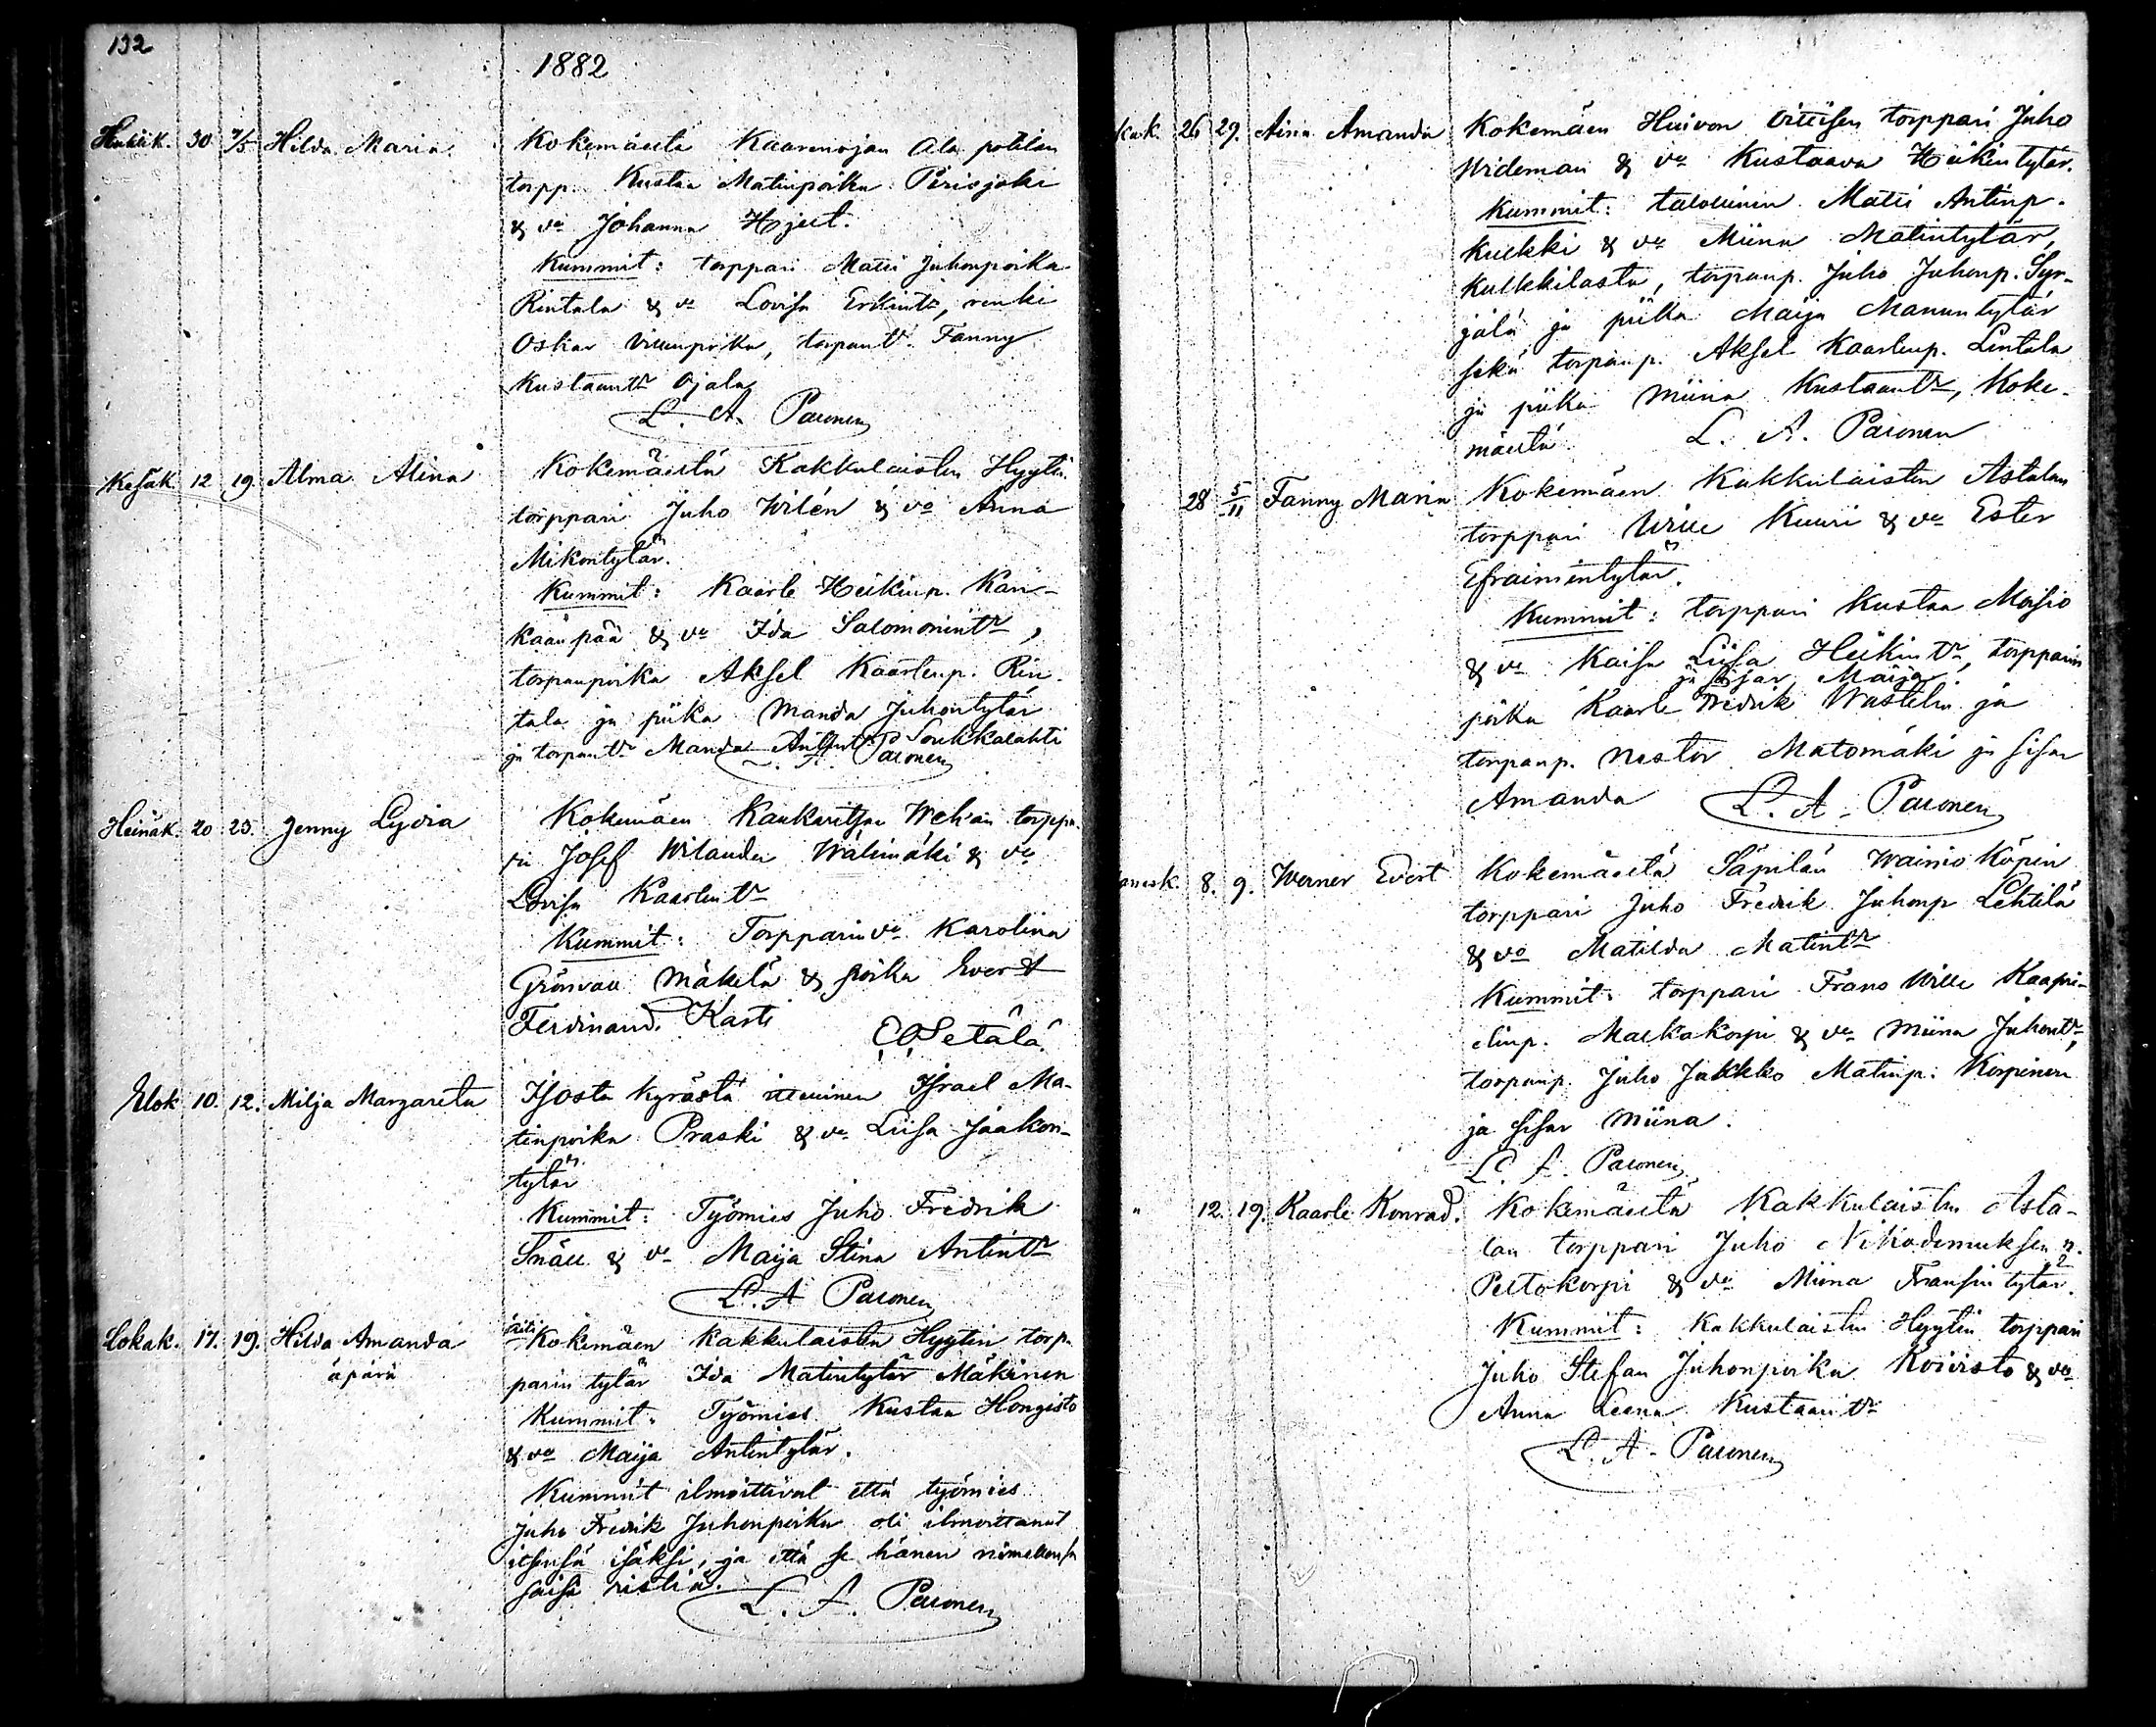 132
1882
Huhtik. 30 7/5 Hilda Maria Kokemäeltä Kaarenojan Ala potilan
torpp. Kustaa Matinpoika Pirisjoki
& vo Johanna Hjelt.
Kummit: torppari Matti Juhonpoika
Rintala & vo Lovisa Erkintr, renki
Oskar Villenpoika, torpantr. Fanny
Kustaantr Ojala
L. A. Palonen
Kesäk. 12 19 Alma Alina Kokemäeltä Kakkulaisten Hyytin
torppari Juho Wilén & vo Anna
Mikontytär.
Kummit: Kaarle Heikinp. Kan-
kaanpää & vo Ida Salomonintr,
torpanpoika Aksel Kaarlenp. Rin-
tala ja piika Manda Juhontytär
ja torpantr Manda Soukkalahti
L. A. Palonen
Heinäk. 20 23. Jenny Lydia Kokemäen Kaukaritsan torppa-
ri Josef Wilander Wälimäki & vo
Lovisa Kaarlentr
Kummit: Torpparin vo Karolina
Grönvall Mäkelä & poika Evert
Ferdinand Karti
E O Setälä.
Elok 10. 12. Milja Margareta Isosta Kyröstä itsellinen Israel Ma-
tinpoika Praski & vo Liisa Jaakon-
tytär
Kummit: Työmies Juho Fredrik
Snäll & vo Maija Stina Antintr
L. A Palonen
Lokak. 17. 19. Hilda Amanda äiti Kokemäen Kakkulaisten Hyytin torp-
äpärä parin tytär Ida Matintytär Mäkinen
Kummit: Työmies Kustaa Hongisto
& vo Maija Antintytär.
Kummit ilmoittivat että työmies
Juho Fredrik Juhonpoika oli ilmoittanut
itsensä isäksi, ja että se hänen nimellensä
saisi ristiä.
L. A. Palonen
kak. 26 29. Aina Amanda Kokemäen Huivon Vitikän torppari Juho
Wideman & vo Kustaava Heikintytär.
Kummit: talollinen Matti Antinp.
Kulkki & vo Miina Matintytär,
Kulkkilasta, torpanp. Juho Juhonp. Syr-
jälä ja piika Maija Manuntytär
sekä torpanp. Aksel Kaarlenp. Lintala
ja piika Miina Kustaantr, Koke-
mäeltä L. A. Palonen
28 5/11 Fanny Maria Kokemäen Kakkulaisten Astalan
torppari Wille Kuuri & vo Ester
Efraimintytär.
Kummit: torppari Kustaa Moisio
& vo Kaisa Liisa Heikintr, torpparin
ja sisar Maija
poika Kaarle Fredrik Wastelin ja
torpanp. Nestor Matomäki ja sisar
Amanda L. A. Palonen
8. 9. Werner Evert Kokemäeltä Säpilän Wainio Köpin
torppari Juho Fredrik Juhonp Lehtilä
& vo Matilda Matintr
Kummit: torppari Frans Wille Kaapri-
elinp. Matkakorpi & vo Miina Juhontr,
torpanp. Juho Jaakko Matinp. Korpinen
ja sisar Miina.
L. A. Palonen
" 12. 19. Kaarle Konrad. Kokemäeltä Kakkulaisten Asta-
lan torppari Juho Nikodemuksen p.
Peltokorpi & vo Miina Fransintytär.
Kummit: Kakkulaisten Hyytin torppari
Juho Stefan Juhonpoika Koivisto & vo
Anna Leena Kustaantr
L. A. Palonen